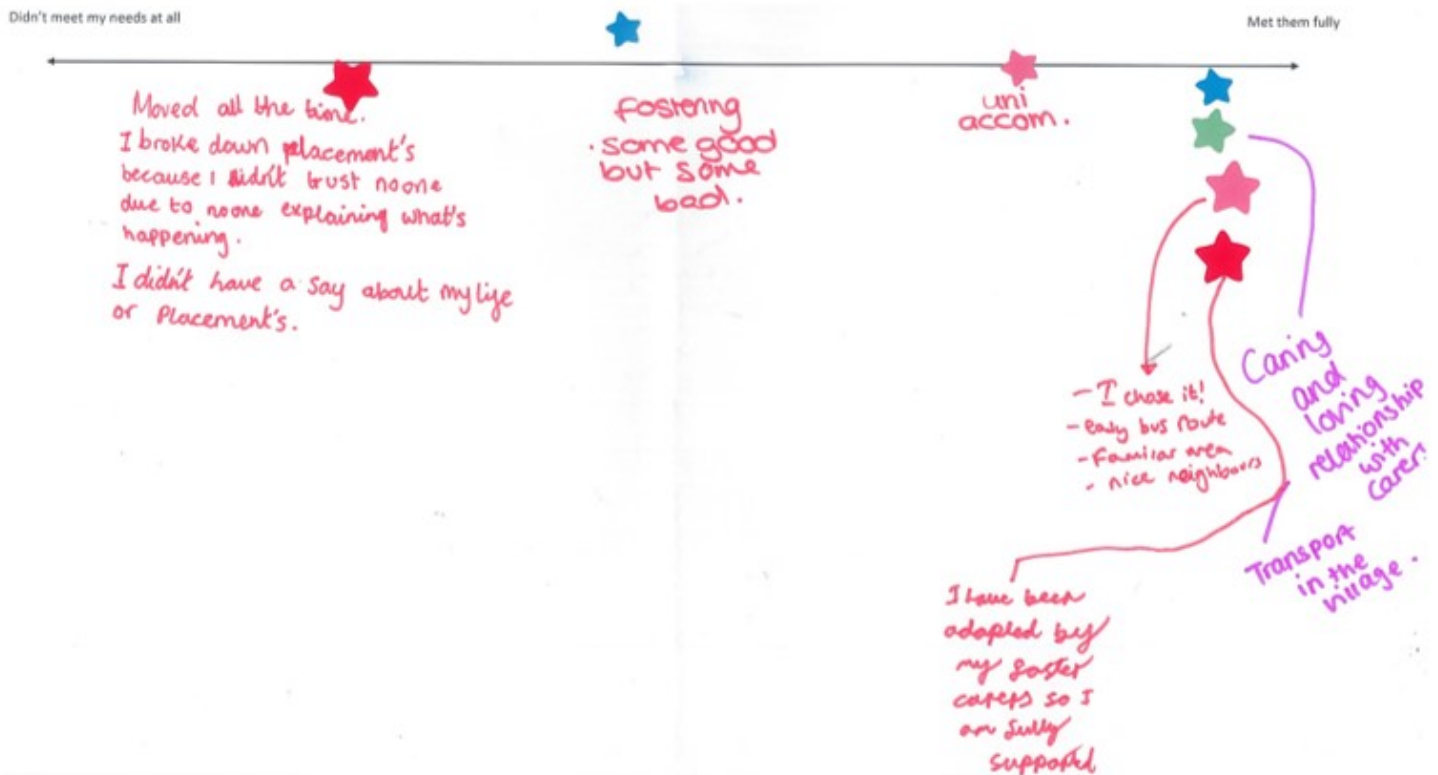 Didn't meet my needs at all
Met them fully
Moved all the time.
I broke down placement's
because I didn't trust noone
due to noone explaining what's
happening.
I didn't have a say about my life
or Placement's.
fostering
. some good
but some
bad.
uni
accom.
- I chose it!
- easy bus route
- Familiar area
- nice neighbours
Caring
and
loving
relationship
with
carer.
Transport
in the
village.
I have been
adapted by
my foster
carers so I
am fully
supported